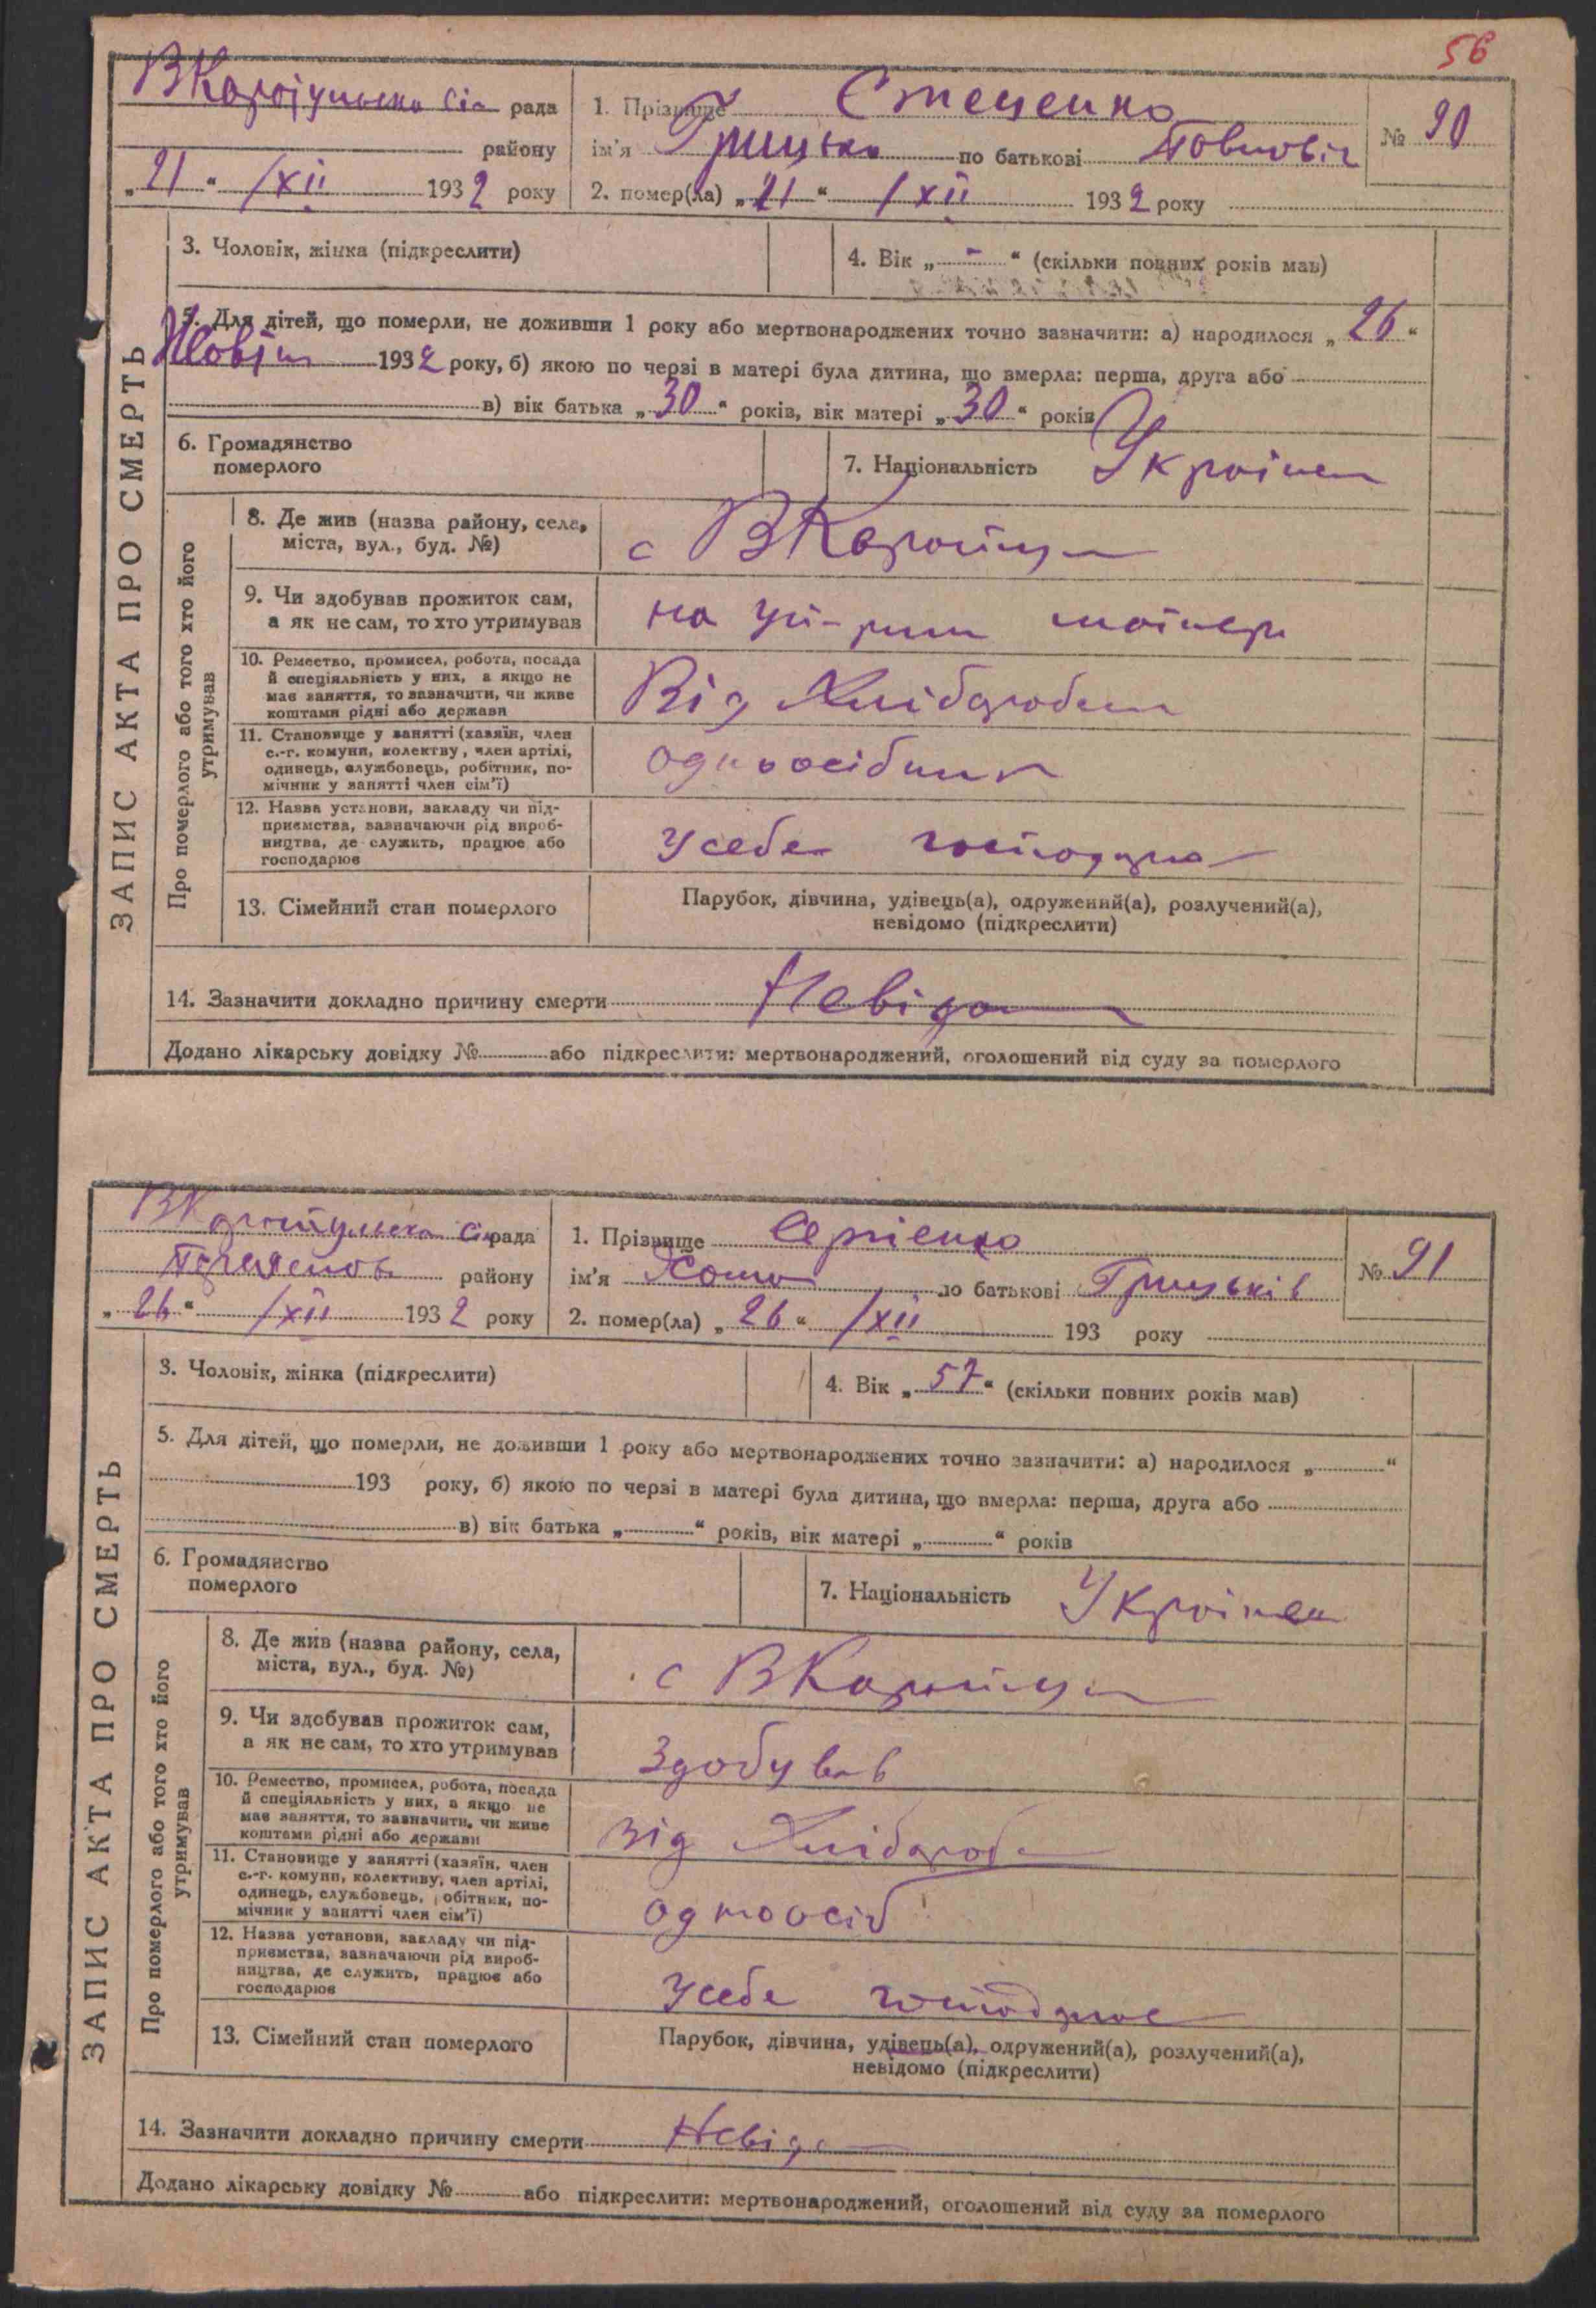 56
рада
району
„21“ /XII 1932 року
1. Прізвище Стеценко
ім'я Грицько по батькові
2. помер(ла) „21“ /XII 1932 року
№ 90
ЗАПИС АКТА ПРО СМЕРТЬ
3. Чоловік, жінка (підкреслити)
4. Вік „-“ (скільки повних років мав)
5. Для дітей, що померли, не доживши 1 року або мертвонароджених точно зазначити: а) народилося „26“
1932 року, б) якою по черзі в матері була дитина, що вмерла: перша, друга або
в) вік батька „30“ років, вік матері „30“ років
6. Громадянство
померлого
7. Національність Українец
Про померлого або того хто його
утримував
8. Де жив (назва району, села,
міста, вул., буд. №)
с
9. Чи здобував прожиток сам,
а як не сам, то хто утримував
на
10. Ремество, промисел, робота, посада
й спеціяльність у них, а якщо не
має заняття, то зазначити, чи живе
коштами рідні або держави
Від
11. Становище у занятті (хазяїн, член
с.-г. комуни, колективу, член артілі,
одинець, службовець, робітник, по-
мічник у занятті член сім'ї)
одноосібник
12. Назва установи, закладу чи під-
приємства, зазначаючи рід вироб-
ництва, де служить, працює або
господарює
У себе
13. Сімейний стан померлого
Парубок, дівчина, удівець(а), одружений(а), розлучений(а),
невідомо (підкреслити)
14. Зазначити докладно причину смерти Невідо
Додано лікарську довідку № або підкреслити: мертвонароджений, оголошений від суду за померлого
рада
району
„26“ /XII 1932 року
1. Прізвище Сергієнко
ім'я Хома по батькові Грицьків
2. помер(ла) „26“ /XII 193 року
№ 91
ЗАПИС АКТА ПРО СМЕРТЬ
3. Чоловік, жінка (підкреслити)
4. Вік „57“ (скільки повних років мав)
5. Для дітей, що померли, не доживши 1 року або мертвонароджених точно зазначити: а) народилося „ “
193 року, б) якою по черзі в матері була дитина, що вмерла: перша, друга або
в) вік батька „ “ років, вік матері „ “ років
6. Громадянство
померлого
7. Національність Українец
Про померлого або того хто його
утримував
8. Де жив (назва району, села,
міста, вул., буд. №)
с
9. Чи здобував прожиток сам,
а як не сам, то хто утримував
Здобував
10. Ремество, промисел, робота, посада
й спеціяльність у них, а якщо не
має заняття, то зазначити, чи живе
коштами рідні або держави
від
11. Становище у занятті (хазяїн, член
с.-г. комуни, колективу, член артілі,
одинець, службовець, робітник, по-
мічник у занятті член сім'ї)
одноосіб
12. Назва установи, закладу чи під-
приємства, зазначаючи рід вироб-
ництва, де служить, працює або
господарює
У себе
13. Сімейний стан померлого
Парубок, дівчина, удівець(а), одружений(а), розлучений(а),
невідомо (підкреслити)
14. Зазначити докладно причину смерти Невідо
Додано лікарську довідку № або підкреслити: мертвонароджений, оголошений від суду за померлого